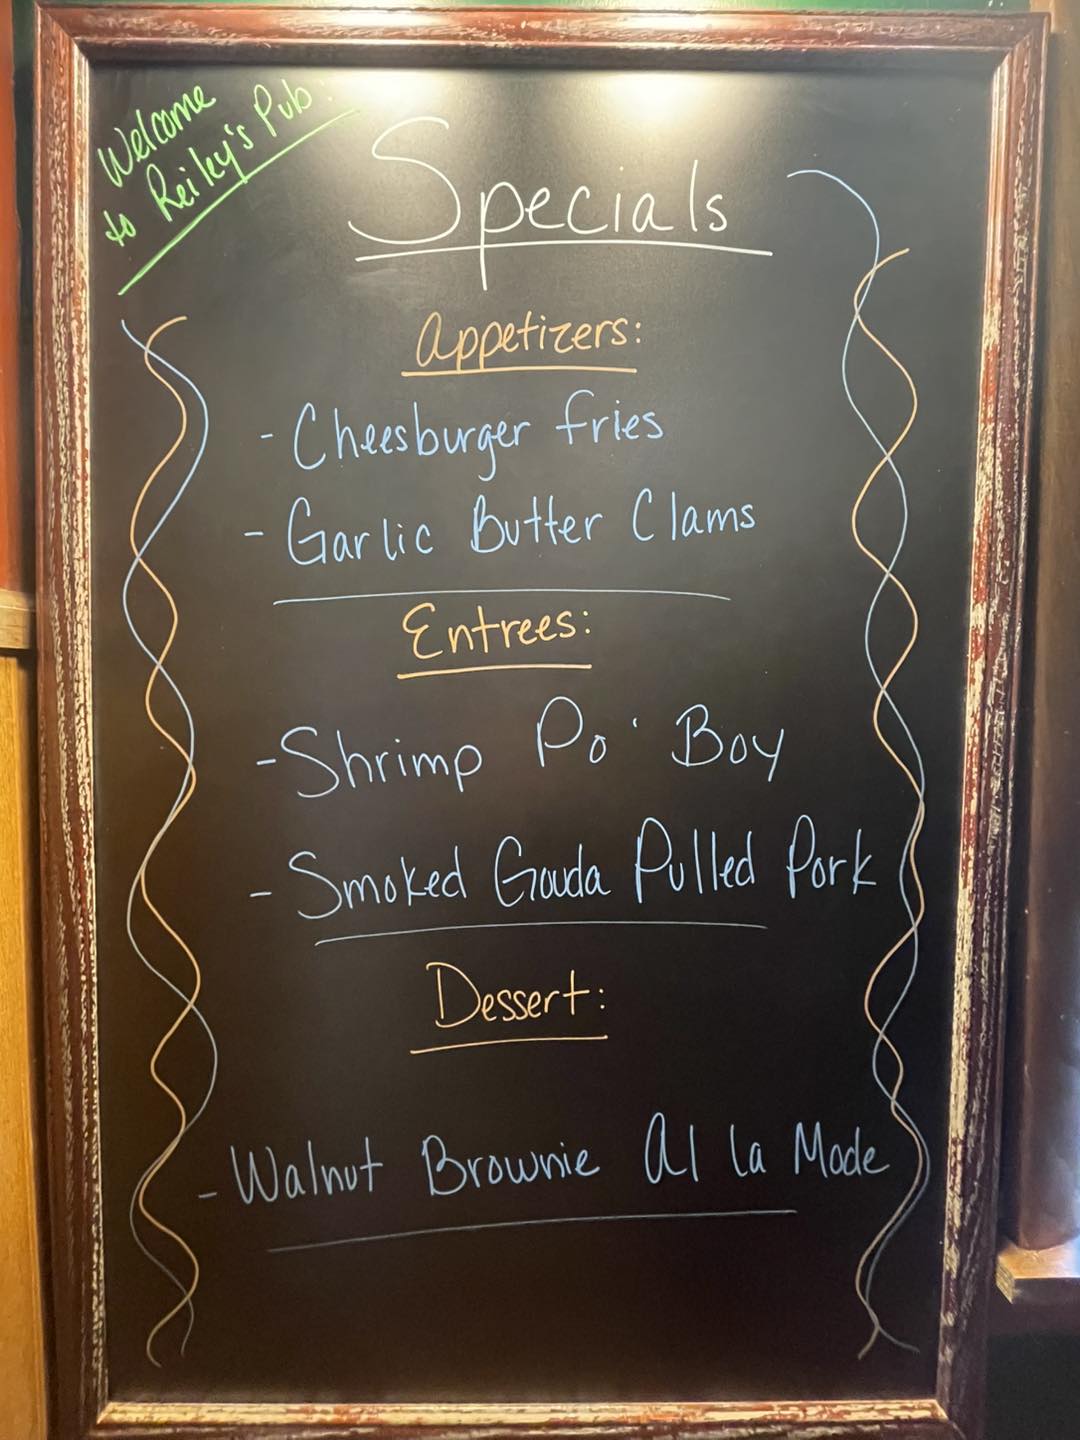 Welcome
to Reiky's Pub!
Specials
Appetizers:
- Cheesburger fries
- Garlic Butter Clams
Entrees:
- Shrimp Po' Boy
- Smoked Gouda Pulled Pork
Dessert:
- Walnut Brownie Al la Mode